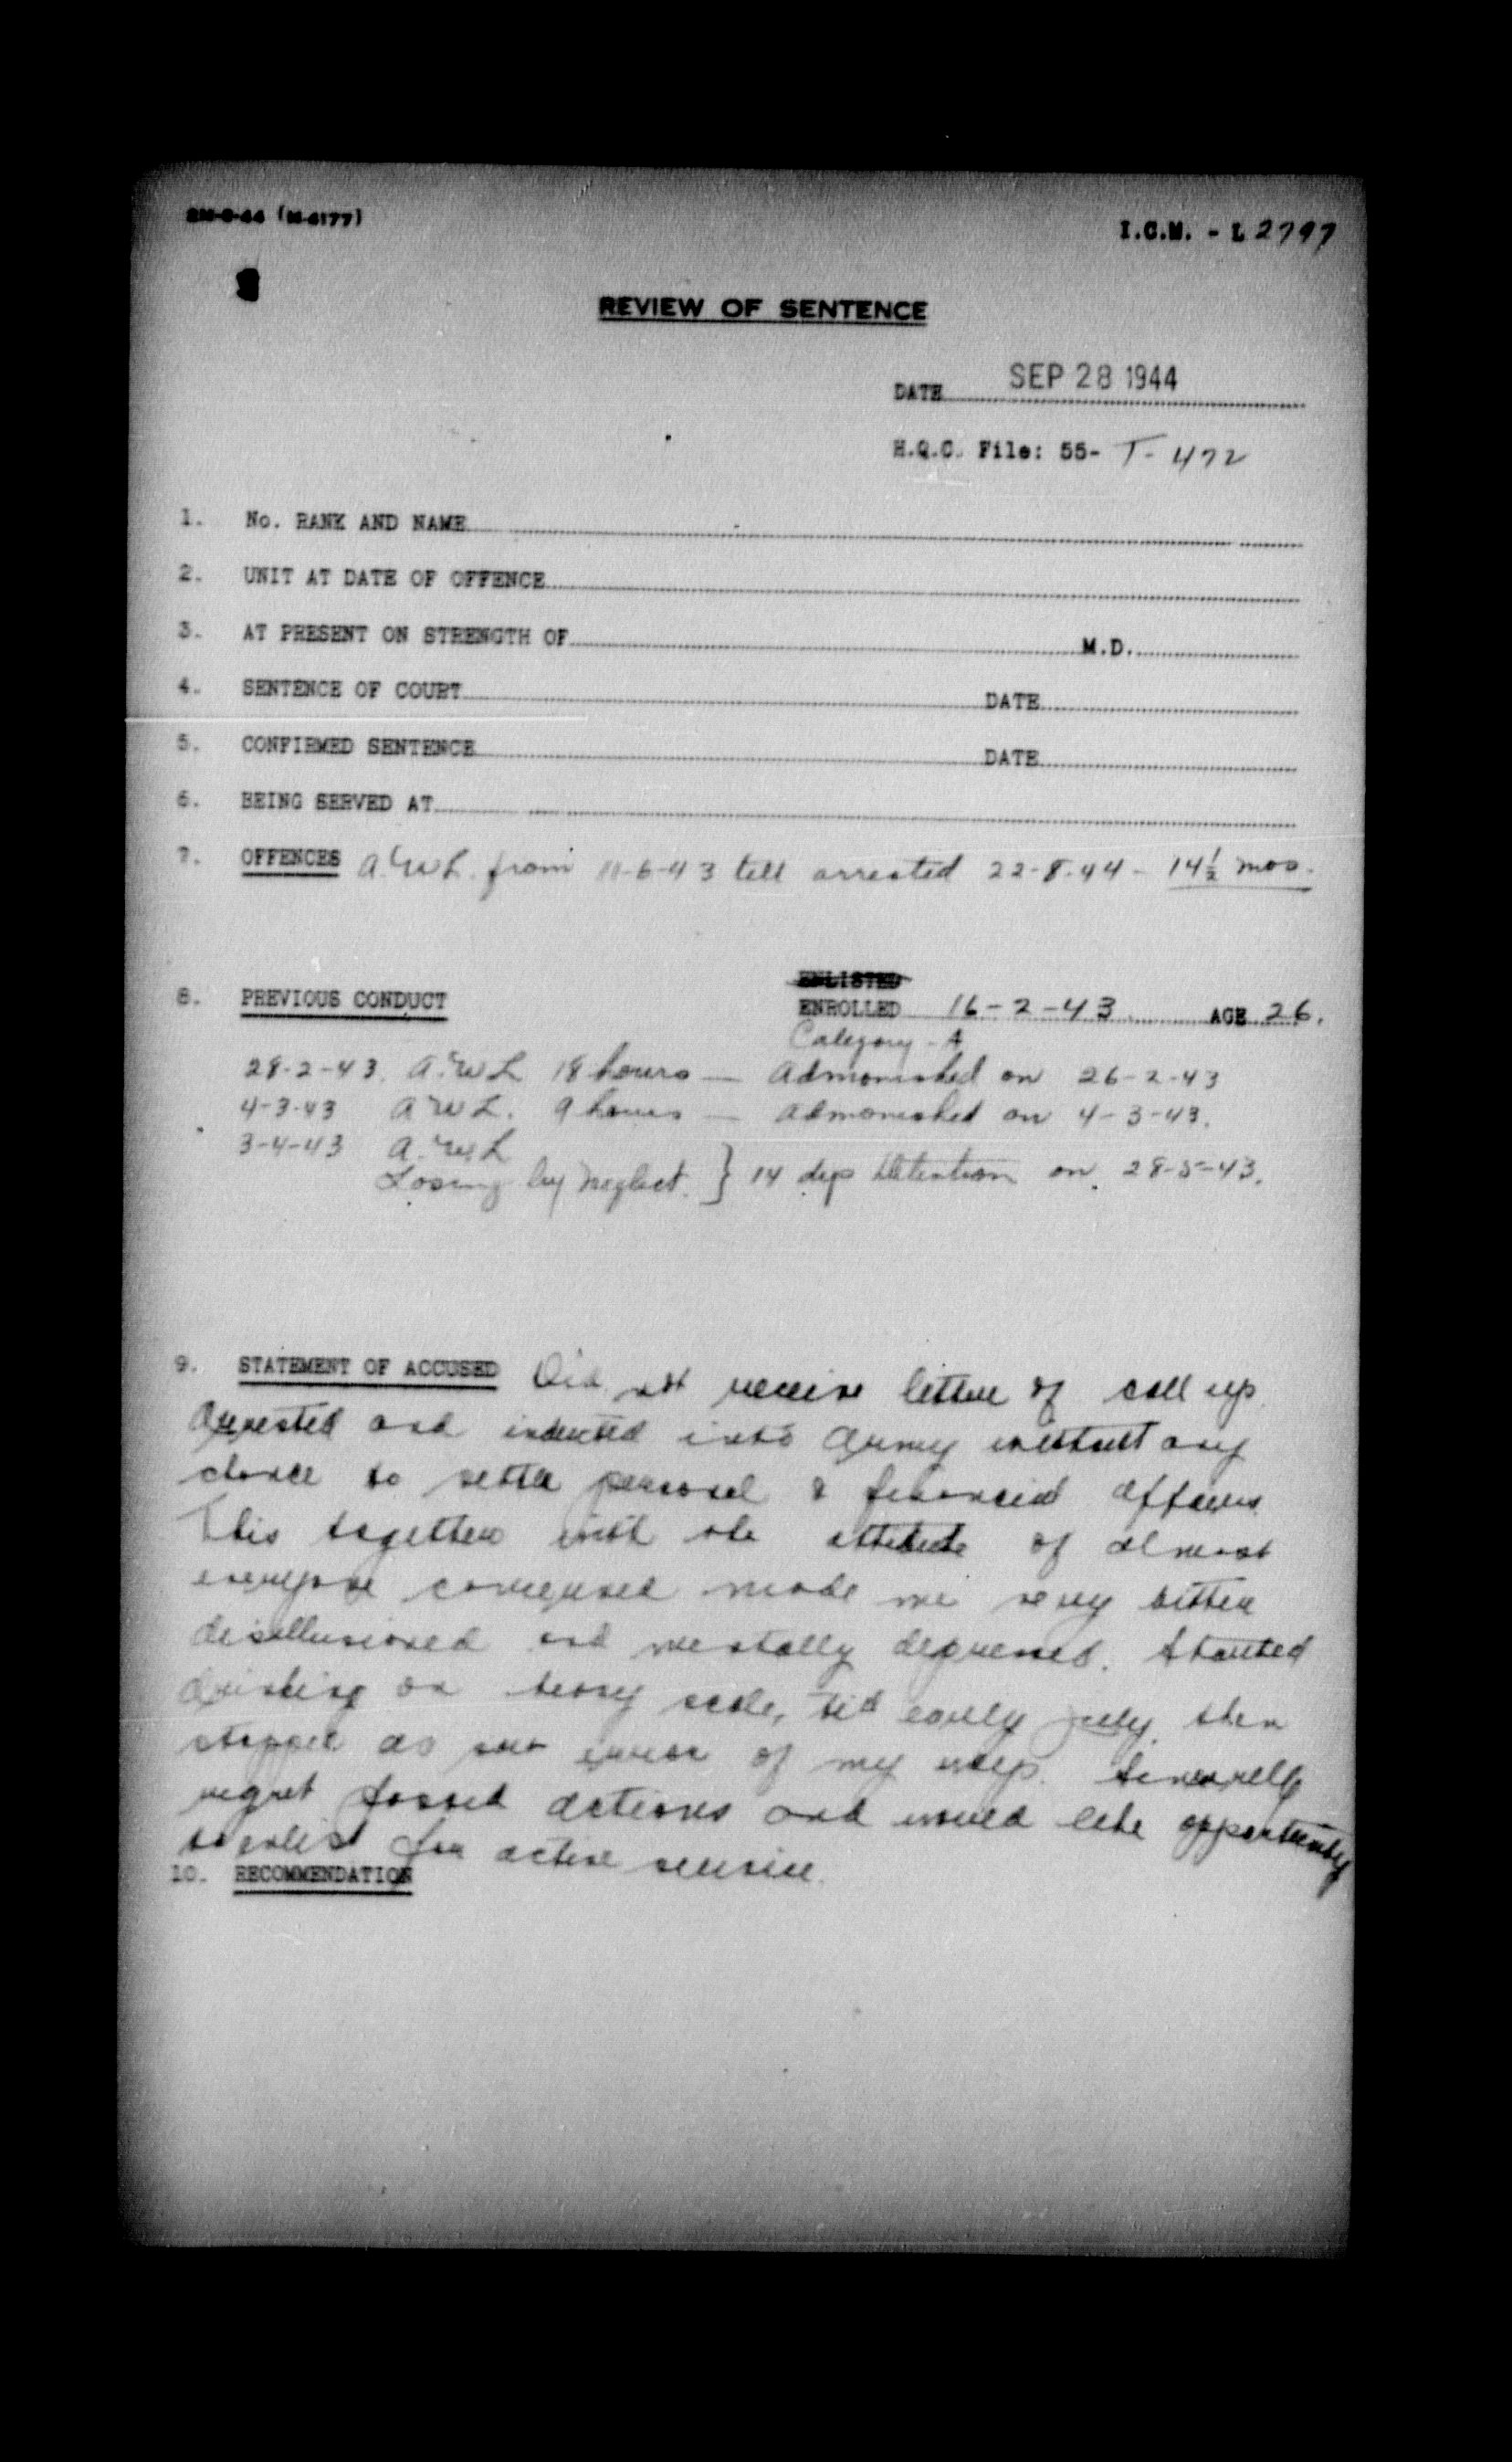 2M-9-44 (M-4177)
I.C.M. - L 2797
REVIEW OF SENTENCE
DATE SEP 28 1944
H.Q.C. File: 55- T- 472
1. No. RANK AND NAME
2. UNIT AT DATE OF OFFENCE
3. AT PRESENT ON STRENGTH OF M.D.
4. SENTENCE OF COURT DATE
5. CONFIRMED SENTENCE DATE
6. BEING SERVED AT
7. OFFENCES A.W.L. from 11-6-43 till arrested 22-8-44 - 14½ mos.
ENLISTED
8. PREVIOUS CONDUCT ENROLLED 16-2-43 AGE 26.
Category - A
28-2-43. A.W.L 18 hours — Admonished on 26-2-43
4-3-43 A.W.L. 9 hours — Admonished on 4-3-43.
3-4-43 A.W.L
Losing by Neglect. } 14 days Detention on 28-5-43.
9. STATEMENT OF ACCUSED Did not receive letter of call up.
Arrested and inducted into Army without any
chance to settle personal & financial affairs.
This together with the attitude of almost
everyone concerned made me very bitter
disillusioned and mentally depressed. Started
drinking on heavy scale, till early July, then
stopped as saw error of my ways. Sincerely
regret passed actions and would like opportunity
to enlist for active service.
10. RECOMMENDATION